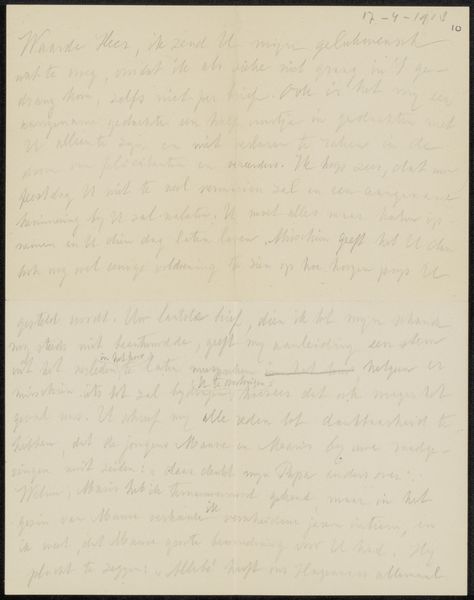 17-4-1913
10
Waarde Heer, ik zend U mijn gelukwensch
wat te vroeg, omdat ik als zieke niet graag in 't ge-
drang kom, zelfs niet per brief. Ook is het mij een
aangename gedachte een half uurtje in gedachten met
U alleen te zijn en niet verloren te raken in de
drom van felicitanten en vereerders. Ik hoop zeer, dat uw
feestdag U niet te veel vermoeien zal en een aangename
herinnering bij U zal nalaten. U moet alles maar
in U dien dag laten Misschien geeft het U dan
ook nog wel eenige voldoening te zien op hoe hoogen prijs U
gesteld wordt. Uw laatste brief, dien ik tot mijn schande
nog steeds niet beantwoordde, geeft mij aanleiding een stem
uit het verleden te laten hetgeen er
misschien iets tot zal bijdragen
geval was. U schreef mij alle reden tot dankbaarheid te
hebben, dat de jongens Mauve en Maris bij uwe
niet zeiden: "daar denkt mijn Papa anders over".
Willem Maris heb ik ternauwernood gekend maar in het
gezin van Mauve verkeerde ik verscheidene jaren intiem, en
ik weet, dat Mauve groote bewondering voor U had. Hij
placht te zeggen: "Allebé heeft ons Hagenaars allemaal